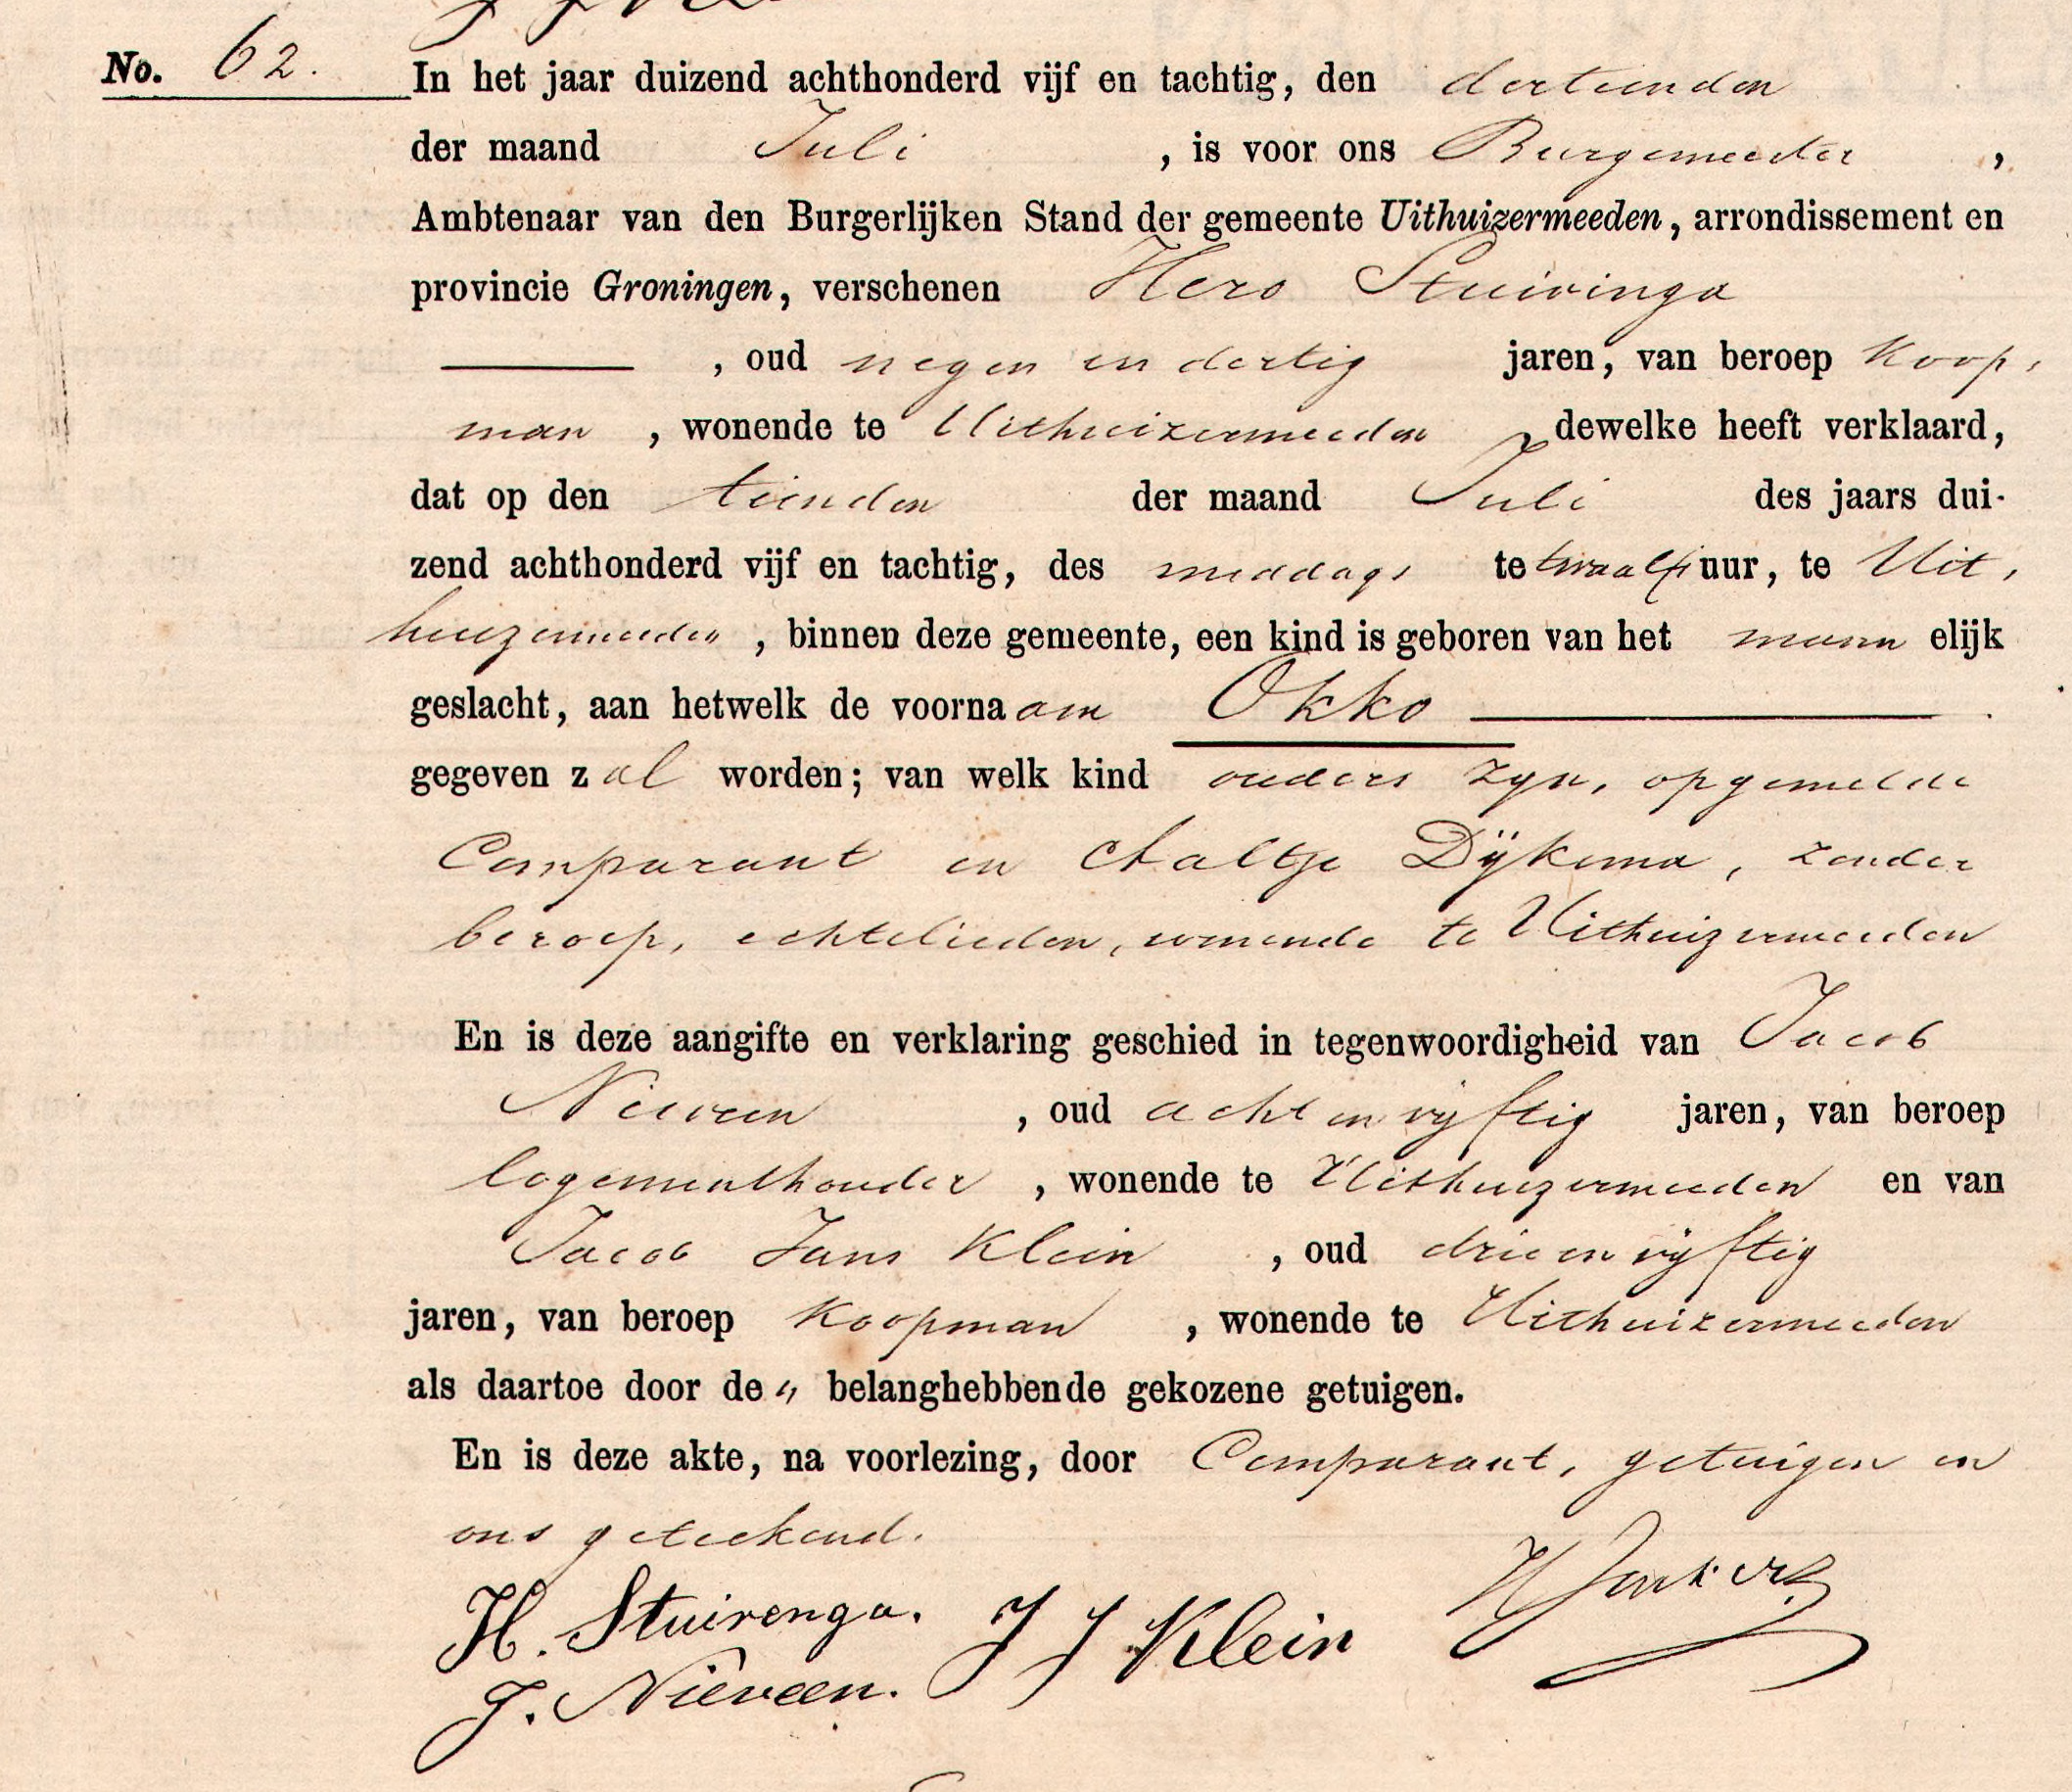 No. 62. In het jaar duizend achthonderd vijf en tachtig, den dertienden
der maand Juli , is voor ons Burgemeester ,
Ambtenaar van den Burgerlijken Stand der gemeente Uithuizermeeden, arrondissement en
provincie Groningen, verschenen Hero Stuivinga
, oud negen en dertig jaren, van beroep koop,
man , wonende te Uithuizermeeden , dewelke heeft verklaard,
dat op den tienden der maand Juli des jaars dui-
zend achthonderd vijf en tachtig, des middags te twaalf uur, te Uit,
huizermeeden , binnen deze gemeente, een kind is geboren van het mann elijk
geslacht, aan hetwelk de voornaam Okko
gegeven zal worden; van welk kind ouders zyn, opgemelde
Comparant en Aaltje Dÿkema, zonder
beroep, echtelieden, wonende te Uithuizermeeden
En is deze aangifte en verklaring geschied in tegenwoordigheid van Jacob
Nieveen , oud acht en vyftig jaren, van beroep
logementhouder , wonende te Uithuizermeeden en van
Jacob Jans Klein , oud drie en vyftig
jaren, van beroep koopman , wonende te Uithuizermeeden
als daartoe door de „ belanghebbende gekozene getuigen.
En is deze akte, na voorlezing, door Comparant, getuigen en
ons geteekend.
H. Stuivenga. J J Klein
J. Nieveen.